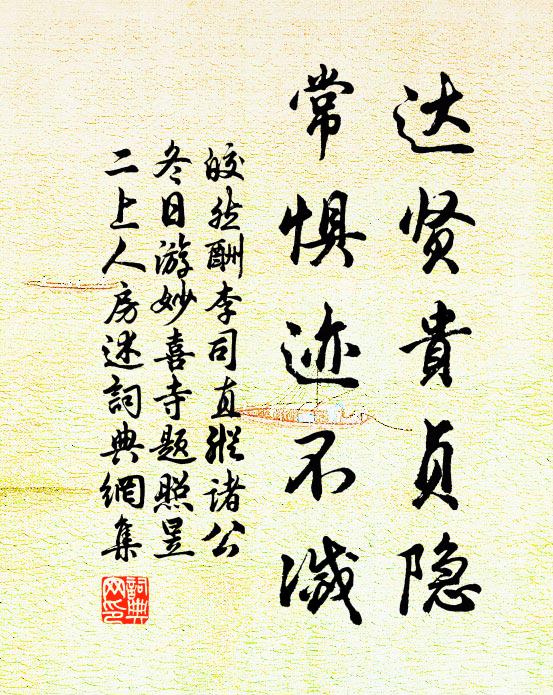 达贤貴贞隐
常惧迹不滅
皎然酬李司直縱诸公
冬日游妙喜寺题照昱
二上人房述詞典網集
詞典网印